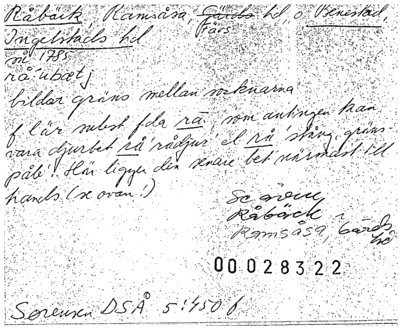 Råbäck, Ramsåsa, Gärds hd, o. Benestad,
Färs
Ingelstads hd
nå 1785
rå:ubætj
bildar gräns mellan socknarna
f l är subst fda rå som antingen kan
vara djurbet rå 'rådjur' el rå 'stång, gräns-
påle'. Här ligger den senare bet närmast till
hands (se ovan!)
Se även
Råbäck
Ramsåsa, Gärds
hd
00028322
Sörensen DSÅ 5:450 f